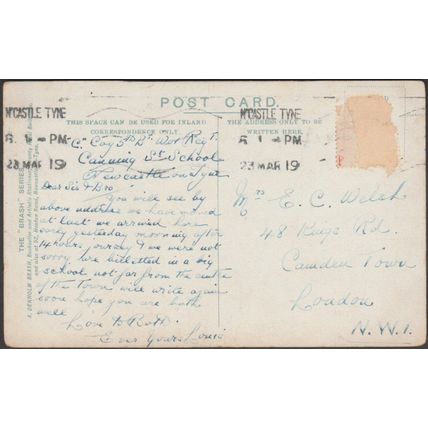 POST CARD.
THIS SPACE CAN BE USED FOR INLAND
CORRESPONDENCE ONLY.
THE ADDRESS ONLY TO BE
WRITTEN HERE.
N'CASTLE TYNE
6. 1 — PM
23 MAR 19
N'CASTLE TYNE
6. 1 — PM
23 MAR 19
THE "BRASH" SERIES
"C" Coy 3rd Bn Wor Regt
Canning St School
Newcastle on Tyne
Dear Sis & Bro
You will see by
above address we have moved
at last we arrived here
early yesterday morning after
14 hours journey & we were not
sorry are billetted in a big
school not far from the centre
of the Town will write again
soon hope you are both
well
Love to Both
Ever Yours
Mrs E. C. Welsh
48 Kings Rd.
Camden Town
London
N.W.1.